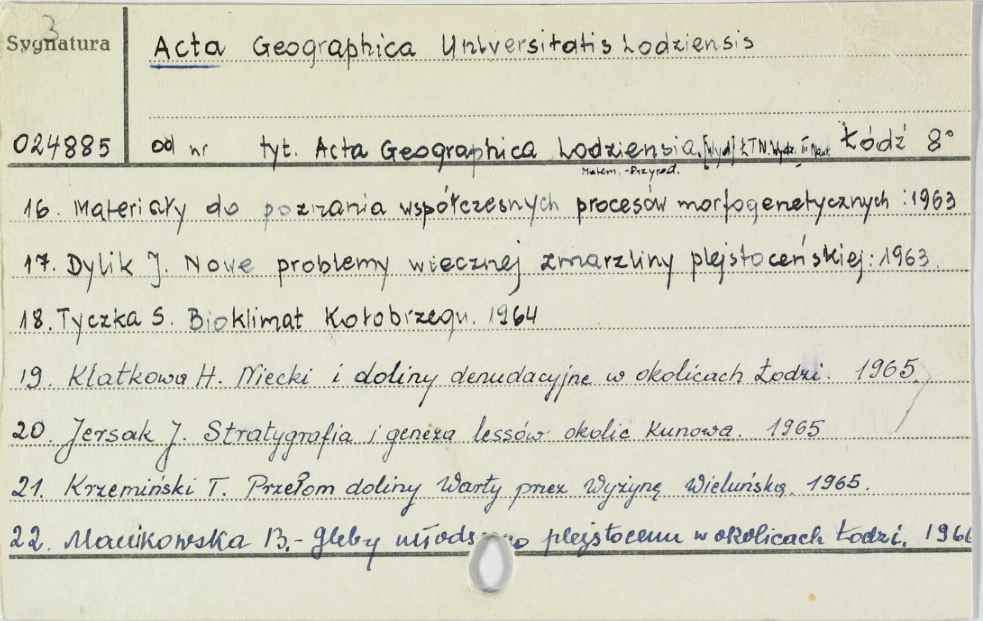 3
Sygnatura
Acta Geographica Universitatis Lodziensis
024885 od nr tyt. Acta Geographica Lodziensia, [Wyd] ŁTN. Wydz. III Nauk Łódź 8°
Matem.-Przyrod.
16. Materiały do poznania współczesnych procesów morfogenetycznych : 1963
17. Dylik J. Nowe problemy wiecznej zmarzliny plejstoceńskiej : 1963.
18. Tyczka S. Bioklimat Kołobrzegu. 1964
19. Klatkowa H. Niecki i doliny denudacyjne w okolicach Łodzi. 1965.
20. Jersak J. Stratygrafia i geneza lessów okolic Kunowa. 1965
21. Krzemiński T. Przełom doliny Warty przez Wyżynę Wieluńską. 1965.
22. Manikowska B. - Gleby plejstocenu w okolicach Łodzi. 1966